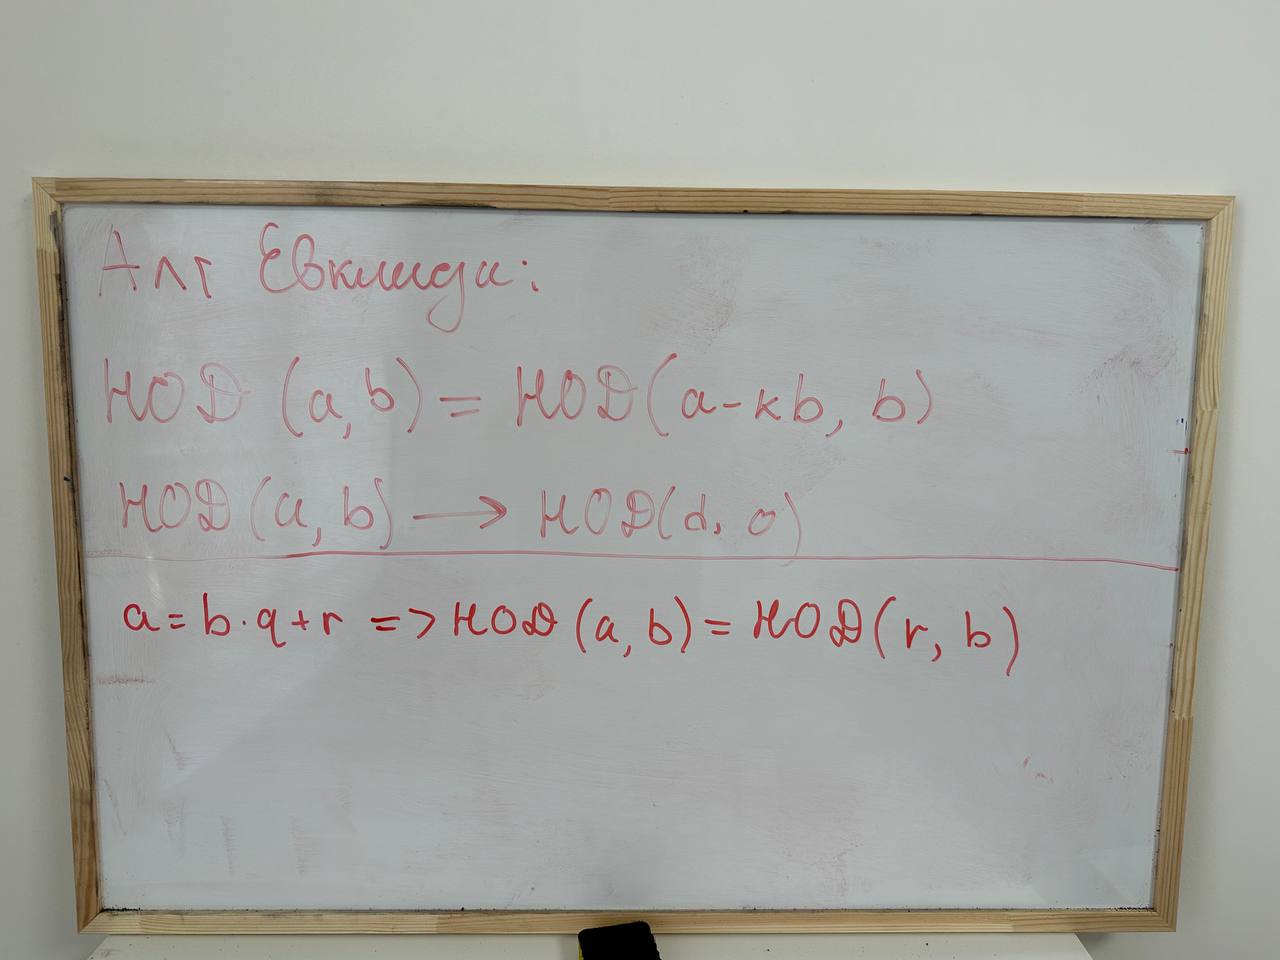 Алг Евклида:
НОД (a, b) = НОД(a-кb, b)
НОД(a, b) → НОД(d, 0)
a = b·q+r => НОД (a, b) = НОД(r, b)